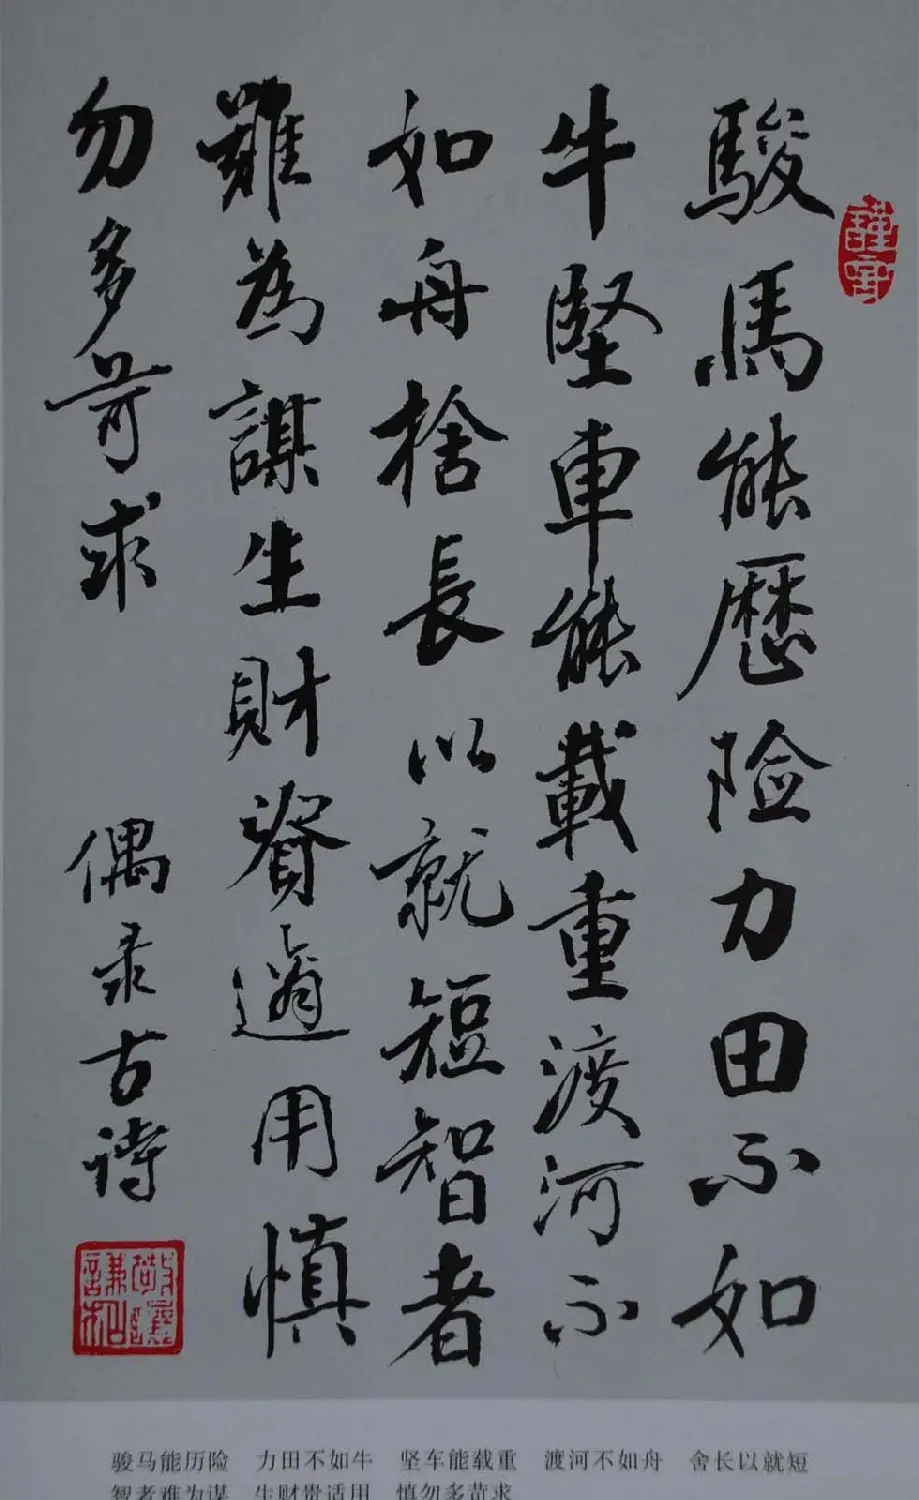 駿馬能歷险力田不如
牛堅車能載重渡河不
如舟捨長以就短智者
難為謀生財資適用慎
勿多苛求 偶录古诗
骏马能历险 力田不如牛 坚车能载重 渡河不如舟 舍长以就短
智者难为谋 生财贵适用 慎勿多苛求